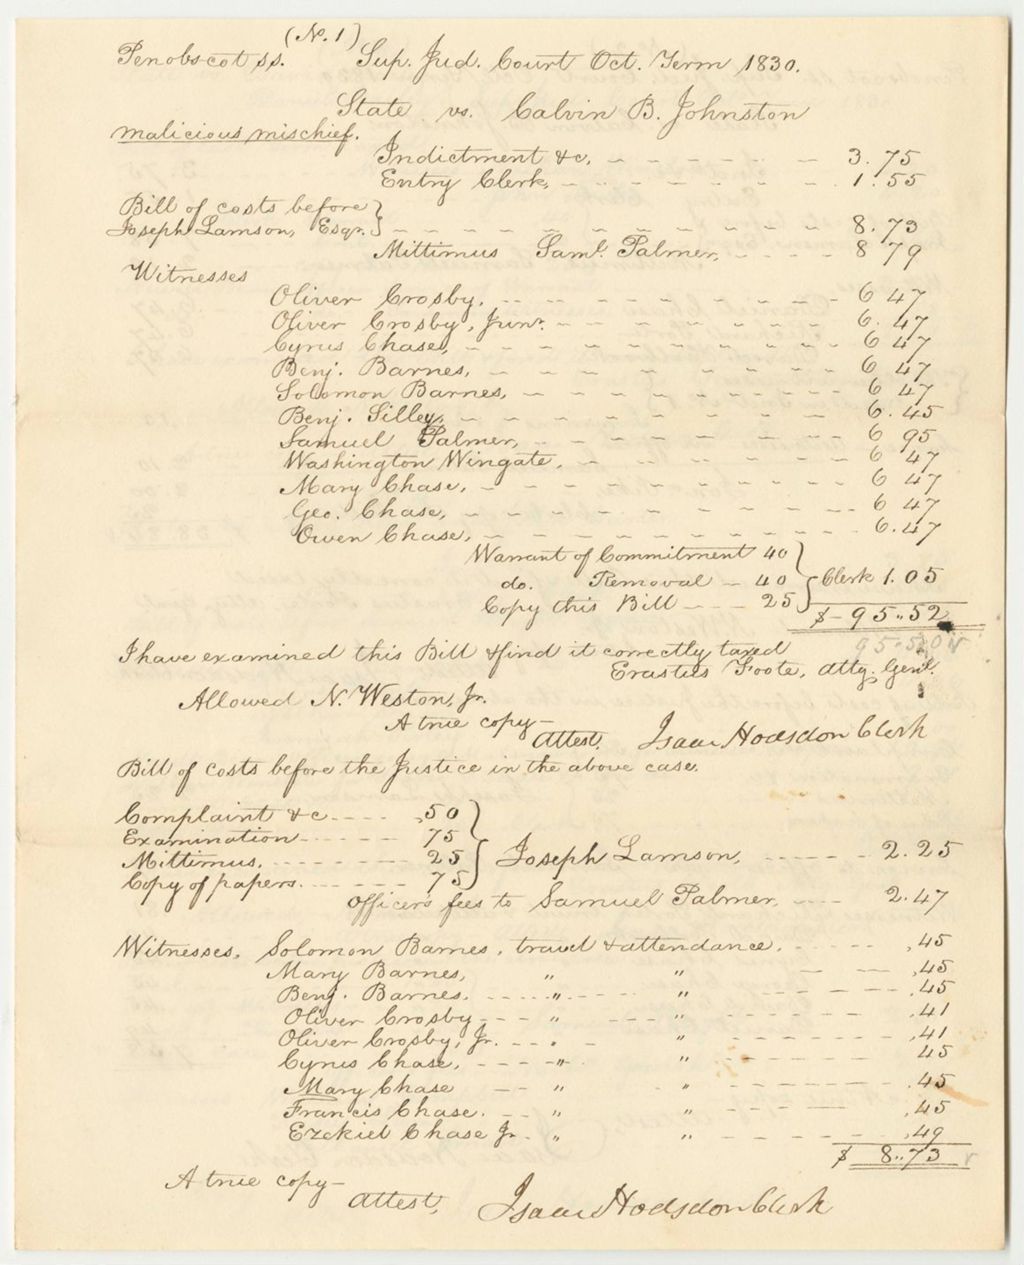 (No. 1)
Penobscot ss. Sup. Jud. Court Oct. Term 1830.
State vs. Calvin B. Johnston
malicious mischief.
Indictment &c, 3.75
Entry Clerk, 1.55
Bill of costs before
Joseph Lamson, Esqr. 8.73
Mittimus Saml. Palmer, 8 79
Witnesses
Oliver Crosby, 6 47
Oliver Crosby, Junr. 6.47
Cyrus Chase, 6 47
Benj. Barnes, 6 47
Solomon Barnes, 6 47
Benj. Silley, 6.45
Samuel Palmer, 6 95
Washington Wingate, 6 47
Mary Chase, 6 47
Geo. Chase, 6 47
Owen Chase, 6.47
Warrant of Commitment 40
do. Removal 40 Clerk 1.05
Copy this Bill 25
$ 95..52
95.52
I have examined this Bill & find it correctly taxed
Erastus Foote, atty. Genl.
Allowed N. Weston, Jr.
A true copy—
Attest, Isaac Hodsdon Clerk
Bill of costs before the Justice in the above case.
Complaint &c ,50
Examination 75
Mittimus, 25 Joseph Lamson, 2.25
Copy of papers. 75
Officers fees to Samuel Palmer, 2.47
Witnesses, Solomon Barnes, travel & attendance. ,45
Mary Barnes, " " ,45
Benj. Barnes. " " ,45
Oliver Crosby " " ,41
Oliver Crosby, Jr. " " ,41
Cyrus Chase, " " 45
Mary Chase " " ,45
Francis Chase. " " ,45
Ezekiel Chase Jr. " " ,49
$ 8..73
A true copy—
Attest, Isaac Hodsdon Clerk